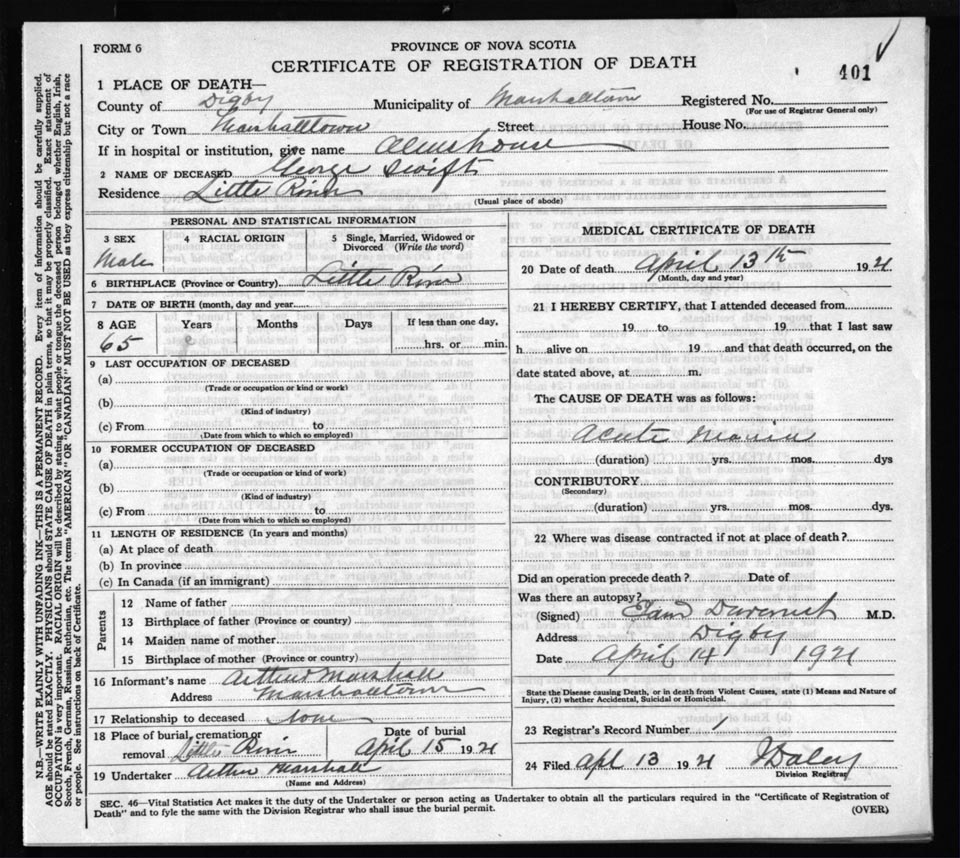 FORM 6
PROVINCE OF NOVA SCOTIA
CERTIFICATE OF REGISTRATION OF DEATH
401
1 PLACE OF DEATH—
County of Digby Municipality of Marshalltown Registered No.
(For use of Registrar General only)
City or Town Marshalltown Street House No.
If in hospital or institution, give name Almshouse
2 NAME OF DECEASED George Swift
Residence Little River
(Usual place of abode)
PERSONAL AND STATISTICAL INFORMATION
3 SEX 4 RACIAL ORIGIN 5 Single, Married, Widowed or Divorced (Write the word)
Male
6 BIRTHPLACE (Province or Country) Little River
7 DATE OF BIRTH (month, day and year
8 AGE Years Months Days If less than one day,
65 hrs. or min.
9 LAST OCCUPATION OF DECEASED
(a)
(Trade or occupation or kind or work)
(b)
(Kind of industry)
(c) From to
(Date from which to which so employed)
10 FORMER OCCUPATION OF DECEASED
(a)
(Trade or occupation or kind of work)
(b)
(Kind of industry)
(c) From to
(Date from which to which so employed)
11 LENGTH OF RESIDENCE (In years and months)
(a) At place of death
(b) In province
(c) In Canada (if an immigrant)
Parents
12 Name of father
13 Birthplace of father (Province or country)
14 Maiden name of mother
15 Birthplace of mother (Province or country)
16 Informant's name Arthur Marshall
Address Marshalltown
17 Relationship to deceased None
18 Place of burial, cremation or removal Little River
Date of burial April 15 1921
19 Undertaker Arthur Marshall
(Name and Address)
MEDICAL CERTIFICATE OF DEATH
20 Date of death April 13th 1921
(Month, day and year)
21 I HEREBY CERTIFY, that I attended deceased from
19 to 19 that I last saw
h alive on 19 and that death occurred, on the
date stated above, at m.
The CAUSE OF DEATH was as follows:
Acute
(duration) yrs. mos. dys
CONTRIBUTORY
(Secondary)
(duration) yrs. mos. dys.
22 Where was disease contracted if not at place of death?
Did an operation precede death? Date of
Was there an autopsy?
(Signed) M.D.
Address Digby
Date April 14 1921
State the Disease causing Death, or in death from Violent Causes, state (1) Means and Nature of
Injury, (2) whether Accidental, Suicidal or Homicidal.
23 Registrar's Record Number
24 Filed Apl 13 1921 Daley
Division Registrar
SEC. 46—Vital Statistics Act makes it the duty of the Undertaker or person acting as Undertaker to obtain all the particulars required in the "Certificate of Registration of
Death" and to fyle the same with the Division Registrar who shall issue the burial permit.
(OVER)
N.B.—WRITE PLAINLY WITH UNFADING INK—THIS IS A PERMANENT RECORD. Every item of information should be carefully supplied.
AGE should be stated EXACTLY. PHYSICIANS should STATE CAUSE OF DEATH in plain terms, so that it may be properly classified. Exact statement of
OCCUPATION is very important. RACIAL ORIGIN will be described by stating to what people or tongue the deceased person belonged whether English, Irish,
Scotch, French, German, Russian, Ruthenian, etc. The terms "AMERICAN" OR "CANADIAN" MUST NOT BE USED as they express citizenship but not a race
or people. See instructions on back of Certificate.